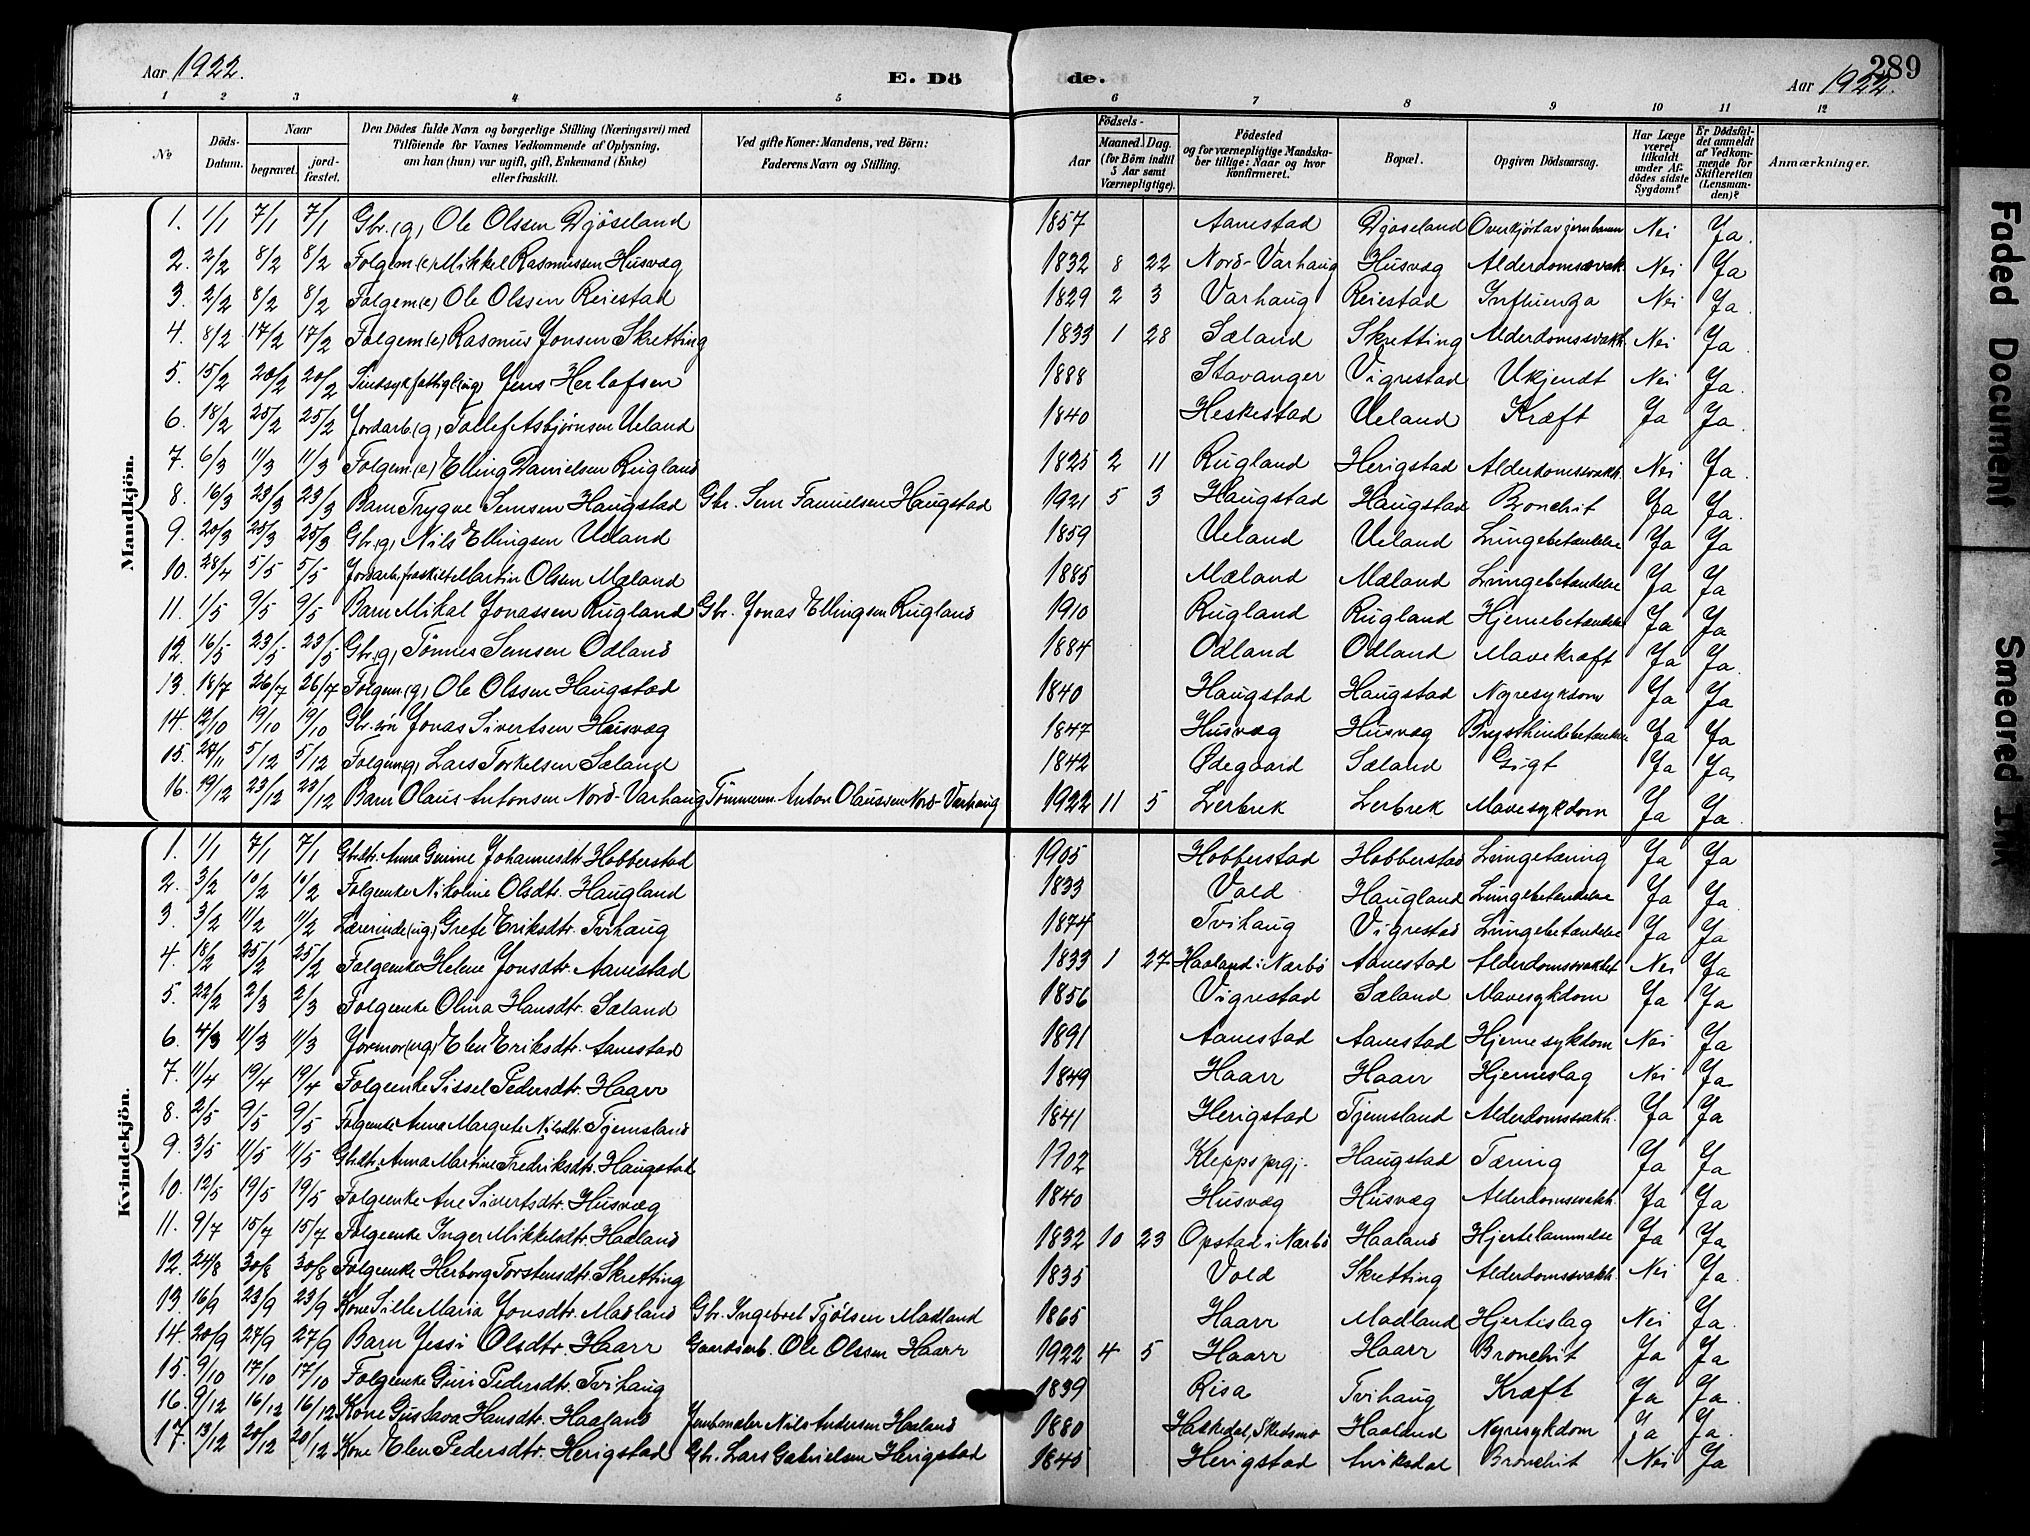 Aar 1922. E. Dö
de. Aar 1922. 289
1 2 3 4 5 6 7 8 9 10 11 12
№ Döds-Datum. Naar begravet. jordfæstet. Den Dödes fulde Navn og borgerlige Stilling (Næringsvei) med Tilföiende for Voxnes Vedkommende af Oplysning, om han (hun) var ugift, gift, Enkemand (Enke) eller fraskilt. Ved gifte Koner: Mandens, ved Börn: Faderens Navn og Stilling. Födsels- Aar Maaned. Dag. (for Börn indtil 5 Aar samt Værnepligtige). Födested og for værnepligtige Mandskaber tillige: Naar og hvor konfirmeret. Bopæl. Opgiven Dödsaarsag. Har Læge været tilkaldt under Afdödes sidste Sygdom? Er Dödsfaldet anmeldt af Vedkommende for Skifteretten (Lensmanden)? Anmærkninger.
Mandkjön.
1. 1/1 7/1 7/1 Gbr. (g) Ole Olssen Djöseland 1857 Aanestad Djöseland Overkjört av jernbanen Nei Ja.
2. 2/2 8/2 8/2 Folgem (e) Mikkel Rasmussen Husvæg 1832 8 22 Nord-Varhaug Husvæg Alderdomssvak. Nei Ja
3. 2/2 8/2 8/2 Folgem (e) Ole Olssen Reiestad 1829 2 3 Varhaug Reiestad Influenza Nei Ja.
4. 8/2 17/2 17/2 Folgem (e) Rasmus Jonsen Skretting 1833 1 28 Sæland Skretting Alderdomssvakh. Nei Ja.
5. 15/2 20/2 20/2 Sindsyk fattigl (ug) Jens Herlofsen 1888 Stavanger Vigrestad Ukjendt Nei Ja.
6. 18/2 25/2 25/2 Jordarb. (g) Tollef Asbjørnsen Ueland 1840 Heskestad Ueland Kræft Ja Ja.
7. 6/3 11/3 11/3 Folgem. (e) Elling Danielsen Rugland 1825 2 11 Rugland Herigstad Alderdomssvakh. Nei Ja.
8. 16/3 23/3 23/3 Barn Trygve Semsen Haugstad Gbr. Sem Samuelsen Haugstad 1921 5 3 Haugstad Haugstad Bronchit Ja Ja.
9. 20/3 25/3 25/3 Gbr. (g) Nils Ellingsen Ueland 1859 Ueland Ueland Lungebetændelse Ja Ja
10. 28/4 5/5 5/5 Jordarb. fraskilt Martin Olsen Mæland 1885 Mæland Mæland Lungebetændelse Ja Ja
11. 1/5 9/5 9/5 Barn Mikal Jonassen Rugland Gbr. Jonas Ellingsen Rugland 1910 Rugland Rugland Hjernebetændelse Ja Ja
12. 16/5 23/5 23/5 Gbr. (g) Tönnes Semsen Odland 1884 Odland Odland Mavekræft Ja Ja.
13. 18/7 26/7 26/7 Folgem. (g) Ole Olssen Haugstad 1840 Haugstad Haugstad Nyresykdom Ja Ja
14. 12/10 19/10 19/10 Gbr. sön Jonas Sivertsen Husvæg 1847 Husvæg Husvæg Brysthindebetændelse Ja Ja
15. 27/11 5/12 5/12 Folgem (g) Lars Torkelsen Sæland 1842 Ødegaard Sæland Gigt Ja Ja
16. 19/12 23/12 23/12 Barn Olaus Antonsen Nord-Varhaug Tömmerm. Anton Olaussen Nord-Varhaug 1922 11 5 Lerbrek Lerbrek Mavesykdom Ja Ja.
Kvindekjön.
1. 1/1 7/1 7/1 Gbrdtr. Anna Gurine Johannesdtr. Hobberstad 1905 Hobberstad Hobberstad Lungetæring Ja Ja
2. 3/2 10/2 10/2 Folgeenke Nikoline Olsdtr. Haugland 1833 Vold Haugland Lungebetændelse Ja Ja.
3. 3/2 11/2 11/2 Lærerinde (ug) Grete Eriksdtr. Tvihaug 1874 Tvihaug Vigrestad Lungebetændelse Ja Ja
4. 18/2 25/2 25/2 Folgeenke Helene Jonsdtr. Aanestad 1833 1 27 Haaland i Nærbö Aanestad Alderdomssvakhet Nei Ja
5. 22/2 2/3 2/3 Folgeenke Olina Hansdtr. Sæland 1856 Vigrestad Sæland Mavesykdom Ja Ja
6. 4/3 11/3 11/3 Joremor (ug) Elen Eriksdtr. Aanestad 1891 Aanestad Aanestad Hjernesykdom Nei Ja
7. 11/4 19/4 19/4 Folgeenke Sissel Pedersdtr. Haarr 1849 Haarr Haarr Hjerneslag Nei Ja
8. 2/5 9/5 9/5 Folgeenke Anna Margrete Nilsdtr. Tjemsland 1841 Herigstad Tjemsland Alderdomssvakh. Ja Ja
9. 3/5 11/5 11/5 Gbrdtr. Anna Martine Fredriksdtr. Haugstad 1902 Klepps prgj. Haugstad Tæring Ja Ja
10. 12/5 19/5 19/5 Folgeenke Ane Sivertsdtr. Husvæg 1840 Husvæg Husvæg Alderdomssvakh. Ja Ja
11. 9/7 15/7 15/7 Folgeenke Inger Mikkelsdtr. Haaland 1832 10 23 Opstad i Nærbö Haaland Hjertelammelse Ja Ja
12. 24/8 30/8 30/8 Folgeenke Herborg Torstensdtr. Skretting 1835 Vold Skretting Alderdomssvakh. Nei Ja.
13. 16/9 23/9 23/9 Kone Sille Maria Jonsdtr. Madland Gbr. Ingebret Tjölsen Madland 1865 Haarr Madland Hjerteslag Nei Ja.
14. 20/9 27/9 27/9 Barn Jessi Olsdtr. Haarr Gaardsarb. Ole Olssen Haarr 1922 4 5 Haarr Haarr Bronchit Ja Ja
15. 9/10 17/10 17/10 Folgeenke Guri Pedersdtr. Tvihaug 1839 Risa Tvihaug Kræft Ja Ja
16. 9/12 16/12 16/12 Kone Gustava Hansdtr. Haaland Nils Andersen Haaland 1880 Haaland Nyresykdom Ja Ja.
17. 13/12 20/12 20/12 Kone Elen Pedersdtr. Herigstad Gbr. Lars Gabrielsen Herigstad 1845 Herigstad Aniksdal Bronchit Nei Ja
Faded Document
Smeared Ink